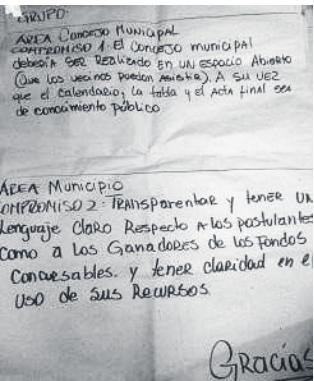 GRUPO:
AREA Concejo Municipal
COMPROMISO 1: El Concejo municipal
deberia ser Realizado en un espacio Abierto
(Que los vecinos puedan Asistir). A su vez
que el Calendario, la tabla y el Acta final sea
de conocimiento público
AREA Municipio
COMPROMISO 2: TRANSparentar y tener UN
Lenguaje Claro Respecto A los postulantes
Como a los Ganadores de los Fondos
Concursables. y tener claridad en el
USO de Sus Recursos.
GRacias